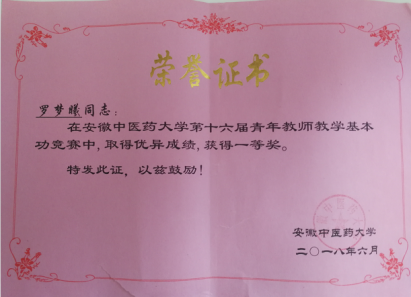 荣誉证书
罗梦曦同志：
在安徽中医药大学第十六届青年教师教学基本
功竞赛中，取得优异成绩，获得一等奖。
特发此证，以兹鼓励！
安徽中医药大学
二〇一八年六月